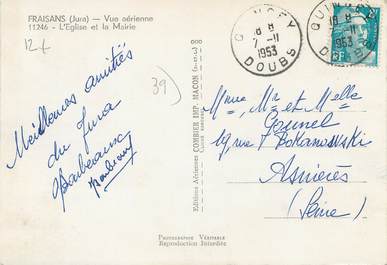 FRAISANS (Jura) — Vue aérienne
11246 - L'Eglise et la Mairie
12+
39)
Meilleures amitiés
du Jura
Editions Aériennes COMBIER IMP. MACON (S.-et-L.)
QUINGEY
18 H
7-11
1953
DOUBS
QUINGEY
18 H
-11
1953
RF
Mme, Mr et Melle
19 rue Bokanowski
Asnières
(Seine)
PHOTOGRAPHIE VÉRITABLE
Reproduction Interdite